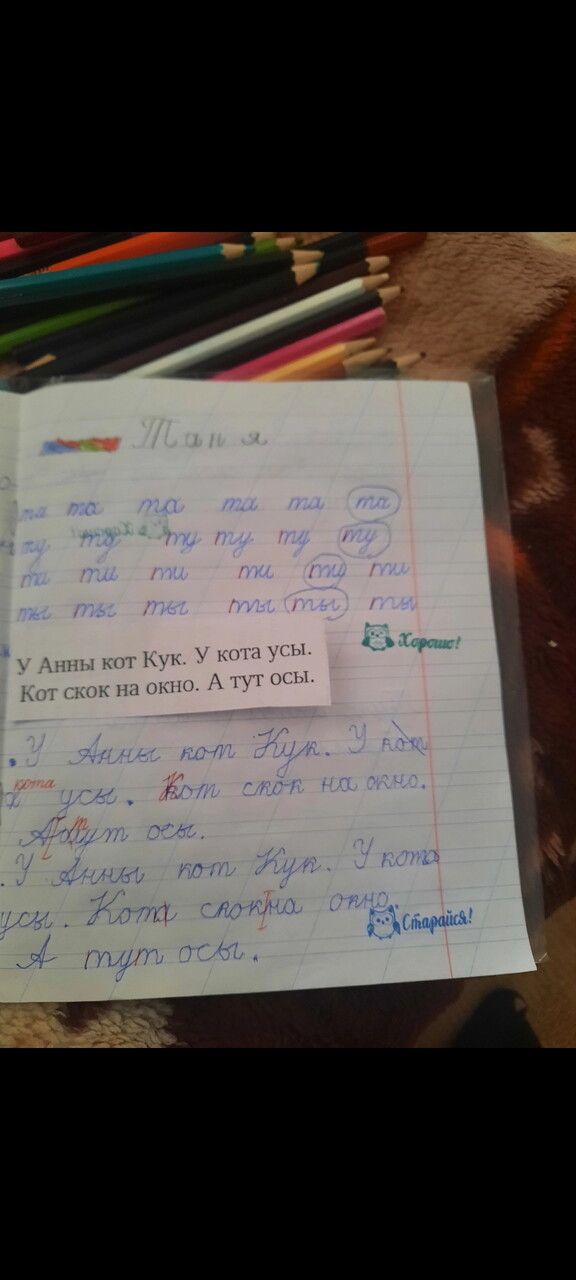 Таня
та та та та та та
ту ту ту ту ту ту
та ти ти ти ти ти
ты ты ты ты ты ты
Хорошо!
У Анны кот Кук. У кота усы.
Кот скок на окно. А тут осы.
У Анны кот Кук. У кот
кота
усы. Кот скок на окно.
А тут осы.
У Анны кот Кук. У кота
усы. Кота скок на окно.
Старайся!
А тут осы.